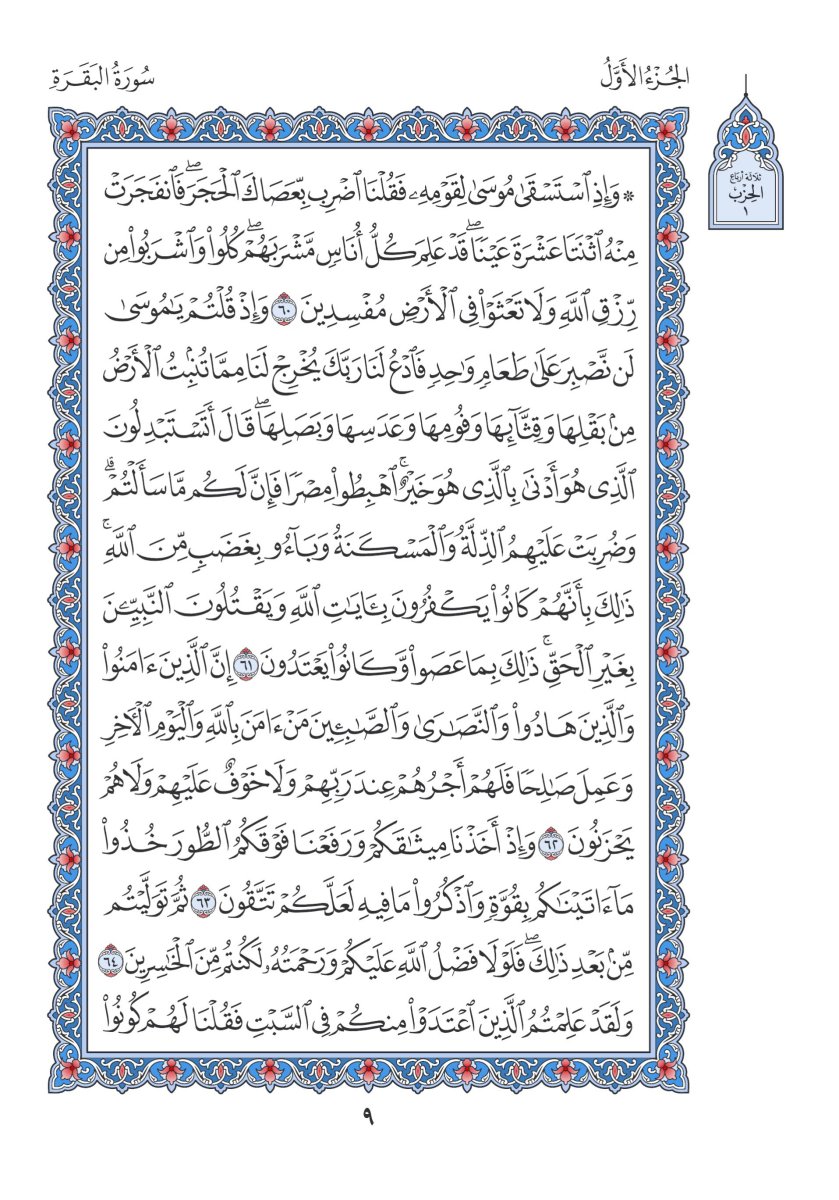 الجُزْءُ الأَوَّلُ
سُورَةُ البَقَرَةِ
ثلاثة أرباع
الحِزْب
١
۞ وَإِذِ ٱسْتَسْقَىٰ مُوسَىٰ لِقَوْمِهِۦ فَقُلْنَا ٱضْرِب بِّعَصَاكَ ٱلْحَجَرَۖ فَٱنفَجَرَتْ
مِنْهُ ٱثْنَتَا عَشْرَةَ عَيْنٗاۖ قَدْ عَلِمَ كُلُّ أُنَاسٖ مَّشْرَبَهُمْۖ كُلُواْ وَٱشْرَبُواْ مِن
رِّزْقِ ٱللَّهِ وَلَا تَعْثَوْاْ فِي ٱلْأَرْضِ مُفْسِدِينَ ٦٠ وَإِذْ قُلْتُمْ يَٰمُوسَىٰ
لَن نَّصْبِرَ عَلَىٰ طَعَامٖ وَٰحِدٖ فَٱدْعُ لَنَا رَبَّكَ يُخْرِجْ لَنَا مِمَّا تُنۢبِتُ ٱلْأَرْضُ
مِنۢ بَقْلِهَا وَقِثَّآئِهَا وَفُومِهَا وَعَدَسِهَا وَبَصَلِهَاۖ قَالَ أَتَسْتَبْدِلُونَ
ٱلَّذِي هُوَ أَدْنَىٰ بِٱلَّذِي هُوَ خَيْرٌۚ ٱهْبِطُواْ مِصْرٗا فَإِنَّ لَكُم مَّا سَأَلْتُمْۗ
وَضُرِبَتْ عَلَيْهِمُ ٱلذِّلَّةُ وَٱلْمَسْكَنَةُ وَبَآءُو بِغَضَبٖ مِّنَ ٱللَّهِۚ
ذَٰلِكَ بِأَنَّهُمْ كَانُواْ يَكْفُرُونَ بِـَٔايَٰتِ ٱللَّهِ وَيَقْتُلُونَ ٱلنَّبِيِّـۧنَ
بِغَيْرِ ٱلْحَقِّۚ ذَٰلِكَ بِمَا عَصَواْ وَّكَانُواْ يَعْتَدُونَ ٦١ إِنَّ ٱلَّذِينَ ءَامَنُواْ
وَٱلَّذِينَ هَادُواْ وَٱلنَّصَٰرَىٰ وَٱلصَّٰبِـِٔينَ مَنْ ءَامَنَ بِٱللَّهِ وَٱلْيَوْمِ ٱلْأٓخِرِ
وَعَمِلَ صَٰلِحٗا فَلَهُمْ أَجْرُهُمْ عِندَ رَبِّهِمْ وَلَا خَوْفٌ عَلَيْهِمْ وَلَا هُمْ
يَحْزَنُونَ ٦٢ وَإِذْ أَخَذْنَا مِيثَٰقَكُمْ وَرَفَعْنَا فَوْقَكُمُ ٱلطُّورَ خُذُواْ
مَآ ءَاتَيْنَٰكُم بِقُوَّةٖ وَٱذْكُرُواْ مَا فِيهِ لَعَلَّكُمْ تَتَّقُونَ ٦٣ ثُمَّ تَوَلَّيْتُم
مِّنۢ بَعْدِ ذَٰلِكَۖ فَلَوْلَا فَضْلُ ٱللَّهِ عَلَيْكُمْ وَرَحْمَتُهُۥ لَكُنتُم مِّنَ ٱلْخَٰسِرِينَ ٦٤
وَلَقَدْ عَلِمْتُمُ ٱلَّذِينَ ٱعْتَدَوْاْ مِنكُمْ فِي ٱلسَّبْتِ فَقُلْنَا لَهُمْ كُونُواْ
٩